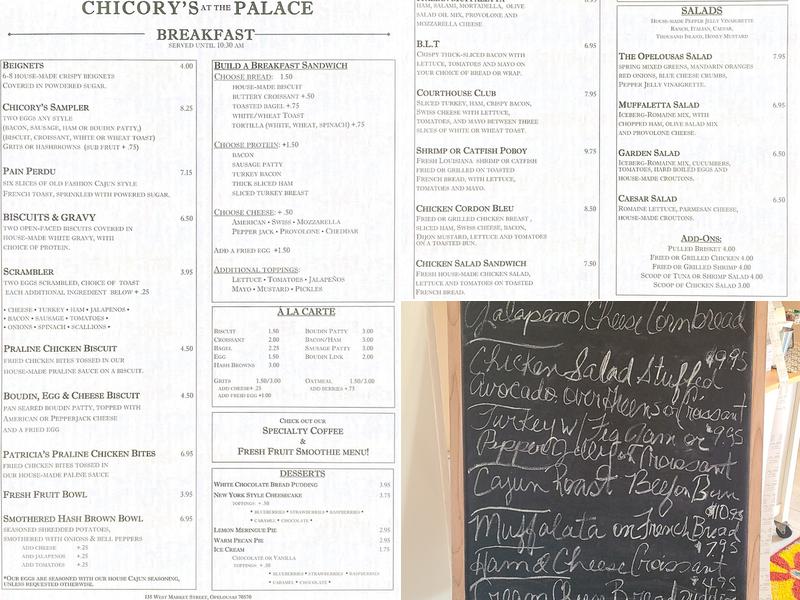 CHICORY'S AT THE PALACE
BREAKFAST
SERVED UNTIL 10:30 AM
BEIGNETS 4.00
6-8 HOUSE-MADE CRISPY BEIGNETS
COVERED IN POWDERED SUGAR.
CHICORY'S SAMPLER 8.25
TWO EGGS ANY STYLE
(BACON, SAUSAGE, HAM OR BOUDIN PATTY,)
(BISCUIT, CROISSANT, WHITE OR WHEAT TOAST)
GRITS OR HASHBROWNS (SUB FRUIT + .75)
PAIN PERDU 7.15
SIX SLICES OF OLD FASHION CAJUN STYLE
FRENCH TOAST, SPRINKLED WITH POWERED SUGAR.
BISCUITS & GRAVY 6.50
TWO OPEN-FACED BISCUITS COVERED IN
HOUSE-MADE WHITE GRAVY, WITH
CHOICE OF PROTEIN.
SCRAMBLER 3.95
TWO EGGS SCRAMBLED, CHOICE OF TOAST
EACH ADDITIONAL INGREDIENT BELOW + .25
• CHEESE • TURKEY • HAM • JALAPENOS •
• BACON • SAUSAGE • TOMATOES •
• ONIONS • SPINACH • SCALLIONS •
PRALINE CHICKEN BISCUIT 4.50
FRIED CHICKEN BITES TOSSED IN OUR
HOUSE-MADE PRALINE SAUCE ON A BISCUIT.
BOUDIN, EGG & CHEESE BISCUIT 4.50
PAN SEARED BOUDIN PATTY, TOPPED WITH
AMERICAN OR PEPPERJACK CHEESE
AND A FRIED EGG
PATRICIA'S PRALINE CHICKEN BITES 6.95
FRIED CHICKEN BITES TOSSED IN
OUR HOUSE-MADE PALINE SAUCE
FRESH FRUIT BOWL 3.95
SMOTHERED HASH BROWN BOWL 6.95
SEASONED SHREDDED POTATOES,
SMOTHERED WITH ONIONS & BELL PEPPERS
ADD CHEESE +.25
ADD JALAPENOS +.25
ADD TOMATOES +.25
*OUR EGGS ARE SEASONED WITH OUR HOUSE CAJUN SEASONING,
UNLESS REQUESTED OTHERWISE.
BUILD A BREAKFAST SANDWICH
CHOOSE BREAD: 1.50
HOUSE-MADE BISCUIT
BUTTERY CROISSANT +.50
TOASTED BAGEL +.75
WHITE/WHEAT TOAST
TORTILLA (WHITE, WHEAT, SPINACH) +.75
CHOOSE PROTEIN: +1.50
BACON
SAUSAGE PATTY
TURKEY BACON
THICK SLICED HAM
SLICED TURKEY BREAST
CHOOSE CHEESE: + .50
AMERICAN • SWISS • MOZZARELLA
PEPPER JACK • PROVOLONE • CHEDDAR
ADD A FRIED EGG +1.50
ADDITIONAL TOPPINGS:
LETTUCE • TOMATOES • JALAPEÑOS
MAYO • MUSTARD • PICKLES
À LA CARTE
BISCUIT 1.50 BOUDIN PATTY 3.00
CROISSANT 2.00 BACON/HAM 3.00
BAGEL 2.25 SAUSAGE PATTY 3.00
EGG 1.50 BOUDIN LINK 2.00
HASH BROWNS 3.00
GRITS 1.50/3.00 OATMEAL 1.50/3.00
ADD CHEESE+ .25 ADD BERRIES +.75
ADD FRIED EGG +1.00
CHECK OUT OUR
SPECIALTY COFFEE
&
FRESH FRUIT SMOOTHIE MENU!
DESSERTS
WHITE CHOCOLATE BREAD PUDDING 3.95
NEW YORK STYLE CHEESECAKE 3.75
TOPPINGS + .50
• BLUEBERRIES • STRAWBERRIES • RASPBERRIES •
• CARAMEL • CHOCOLATE •
LEMON MERINGUE PIE 2.95
WARM PECAN PIE 2.95
ICE CREAM 1.75
CHOCOLATE OR VANILLA
TOPPINGS + .50
• BLUEBERRIES • STRAWBERRIES • RASPBERRIES
• CARAMEL • CHOCOLATE •
135 WEST MARKET STREET, OPELOUSAS 70570
HAM, SALAMI, MORTADELLA, OLIVE
SALAD OIL MIX, PROVOLONE AND
MOZZARELLA CHEESE
B.L.T 6.95
CRISPY THICK-SLICED BACON WITH
LETTUCE, TOMATOES AND MAYO ON
YOUR CHOICE OF BREAD OR WRAP.
COURTHOUSE CLUB 7.95
SLICED TURKEY, HAM, CRISPY BACON,
SWISS CHEESE WITH LETTUCE,
TOMATOES, AND MAYO BETWEEN THREE
SLICES OF WHITE OR WHEAT TOAST.
SHRIMP OR CATFISH POBOY 9.75
FRESH LOUISIANA SHRIMP OR CATFISH
FRIED OR GRILLED ON TOASTED
FRENCH BREAD, WITH LETTUCE,
TOMATOES AND MAYO.
CHICKEN CORDON BLEU 8.50
FRIED OR GRILLED CHICKEN BREAST,
SLICED HAM, SWISS CHEESE, BACON,
DIJON MUSTARD, LETTUCE AND TOMATOES
ON A TOASTED BUN.
CHICKEN SALAD SANDWICH 7.50
FRESH HOUSE-MADE CHICKEN SALAD,
LETTUCE AND TOMATOES ON TOASTED
FRENCH BREAD.
SALADS
HOUSE-MADE PEPPER JELLY VINAIGRETTE
RANCH, ITALIAN, CAESAR,
THOUSAND ISLAND, HONEY MUSTARD
THE OPELOUSAS SALAD 7.95
SPRING MIXED GREENS, MANDARIN ORANGES
RED ONIONS, BLUE CHEESE CRUMBS,
PEPPER JELLY VINAIGRETTE.
MUFFALETTA SALAD 6.95
ICEBERG-ROMAINE MIX, WITH
CHOPPED HAM, OLIVE SALAD MIX
AND PROVOLONE CHEESE.
GARDEN SALAD 6.50
ICEBERG-ROMAINE MIX, CUCUMBERS,
TOMATOES, HARD BOILED EGGS AND
HOUSE-MADE CROUTONS.
CAESAR SALAD 6.50
ROMAINE LETTUCE, PARMESAN CHEESE,
HOUSE-MADE CROUTONS.
ADD-ONS:
PULLED BRISKET 4.00
FRIED OR GRILLED CHICKEN 4.00
FRIED OR GRILLED SHRIMP 4.00
SCOOP OF TUNA OR SHRIMP SALAD 4.00
SCOOP OF CHICKEN SALAD 3.00
Jalapeno, Cheese Cornbread
Chicken Salad Stuffed $9.95
Avocado over greens or Croissant
Turkey w/ Fig Jam or $9.95
Pepper Jelly on Croissant
Cajun Roast Beef on Bun
$10.95
Muffalata on French Bread
$7.95
Ham & Cheese Croissant
$4.95